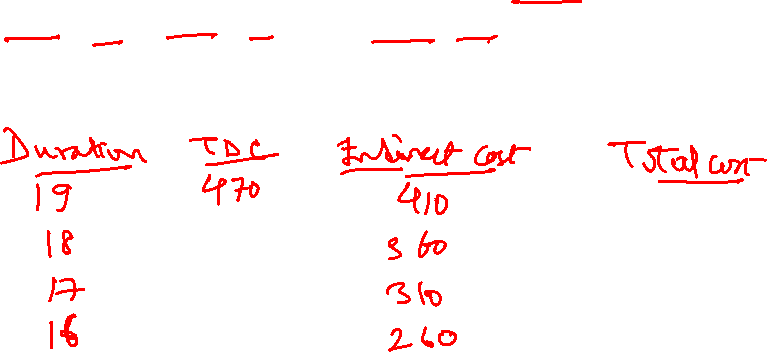 Duration TDC Indirect Cost Total cost
19 470 410
18 360
17 310
16 260